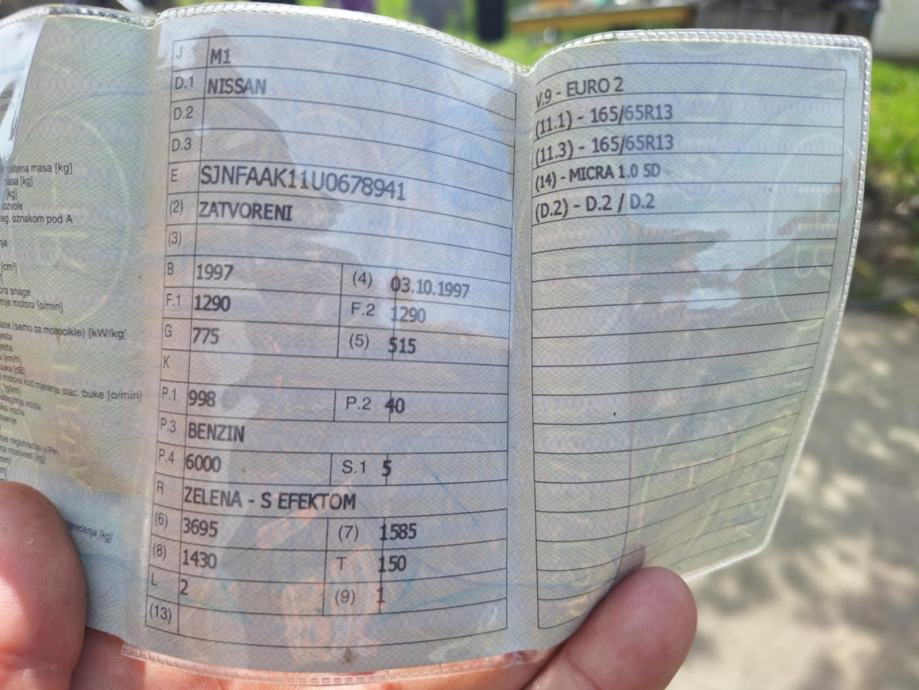 uštena masa [kg]
masa [kg]
[kg]
ozvole
eg. oznakom pod A
[cm³]
ora snage
motora [o/min]
(samo za motocikle) [kW/kg]
jesta
stac. buke [o/min]
J M1
D.1 NISSAN
D.2
D.3
E SJNFAAK11U0678941
(2) ZATVORENI
(3)
B 1997 (4) 03.10.1997
F.1 1290 F.2 1290
G 775 (5) 515
K
P.1 998 P.2 40
P.3 BENZIN
P.4 6000 S.1 5
R ZELENA - S EFEKTOM
(6) 3695 (7) 1585
(8) 1430 T 150
L 2 (9) 1
(13)
V.9 - EURO 2
(11.1) - 165/65R13
(11.3) - 165/65R13
(14) - MICRA 1.0 5D
(D.2) - D.2 / D.2